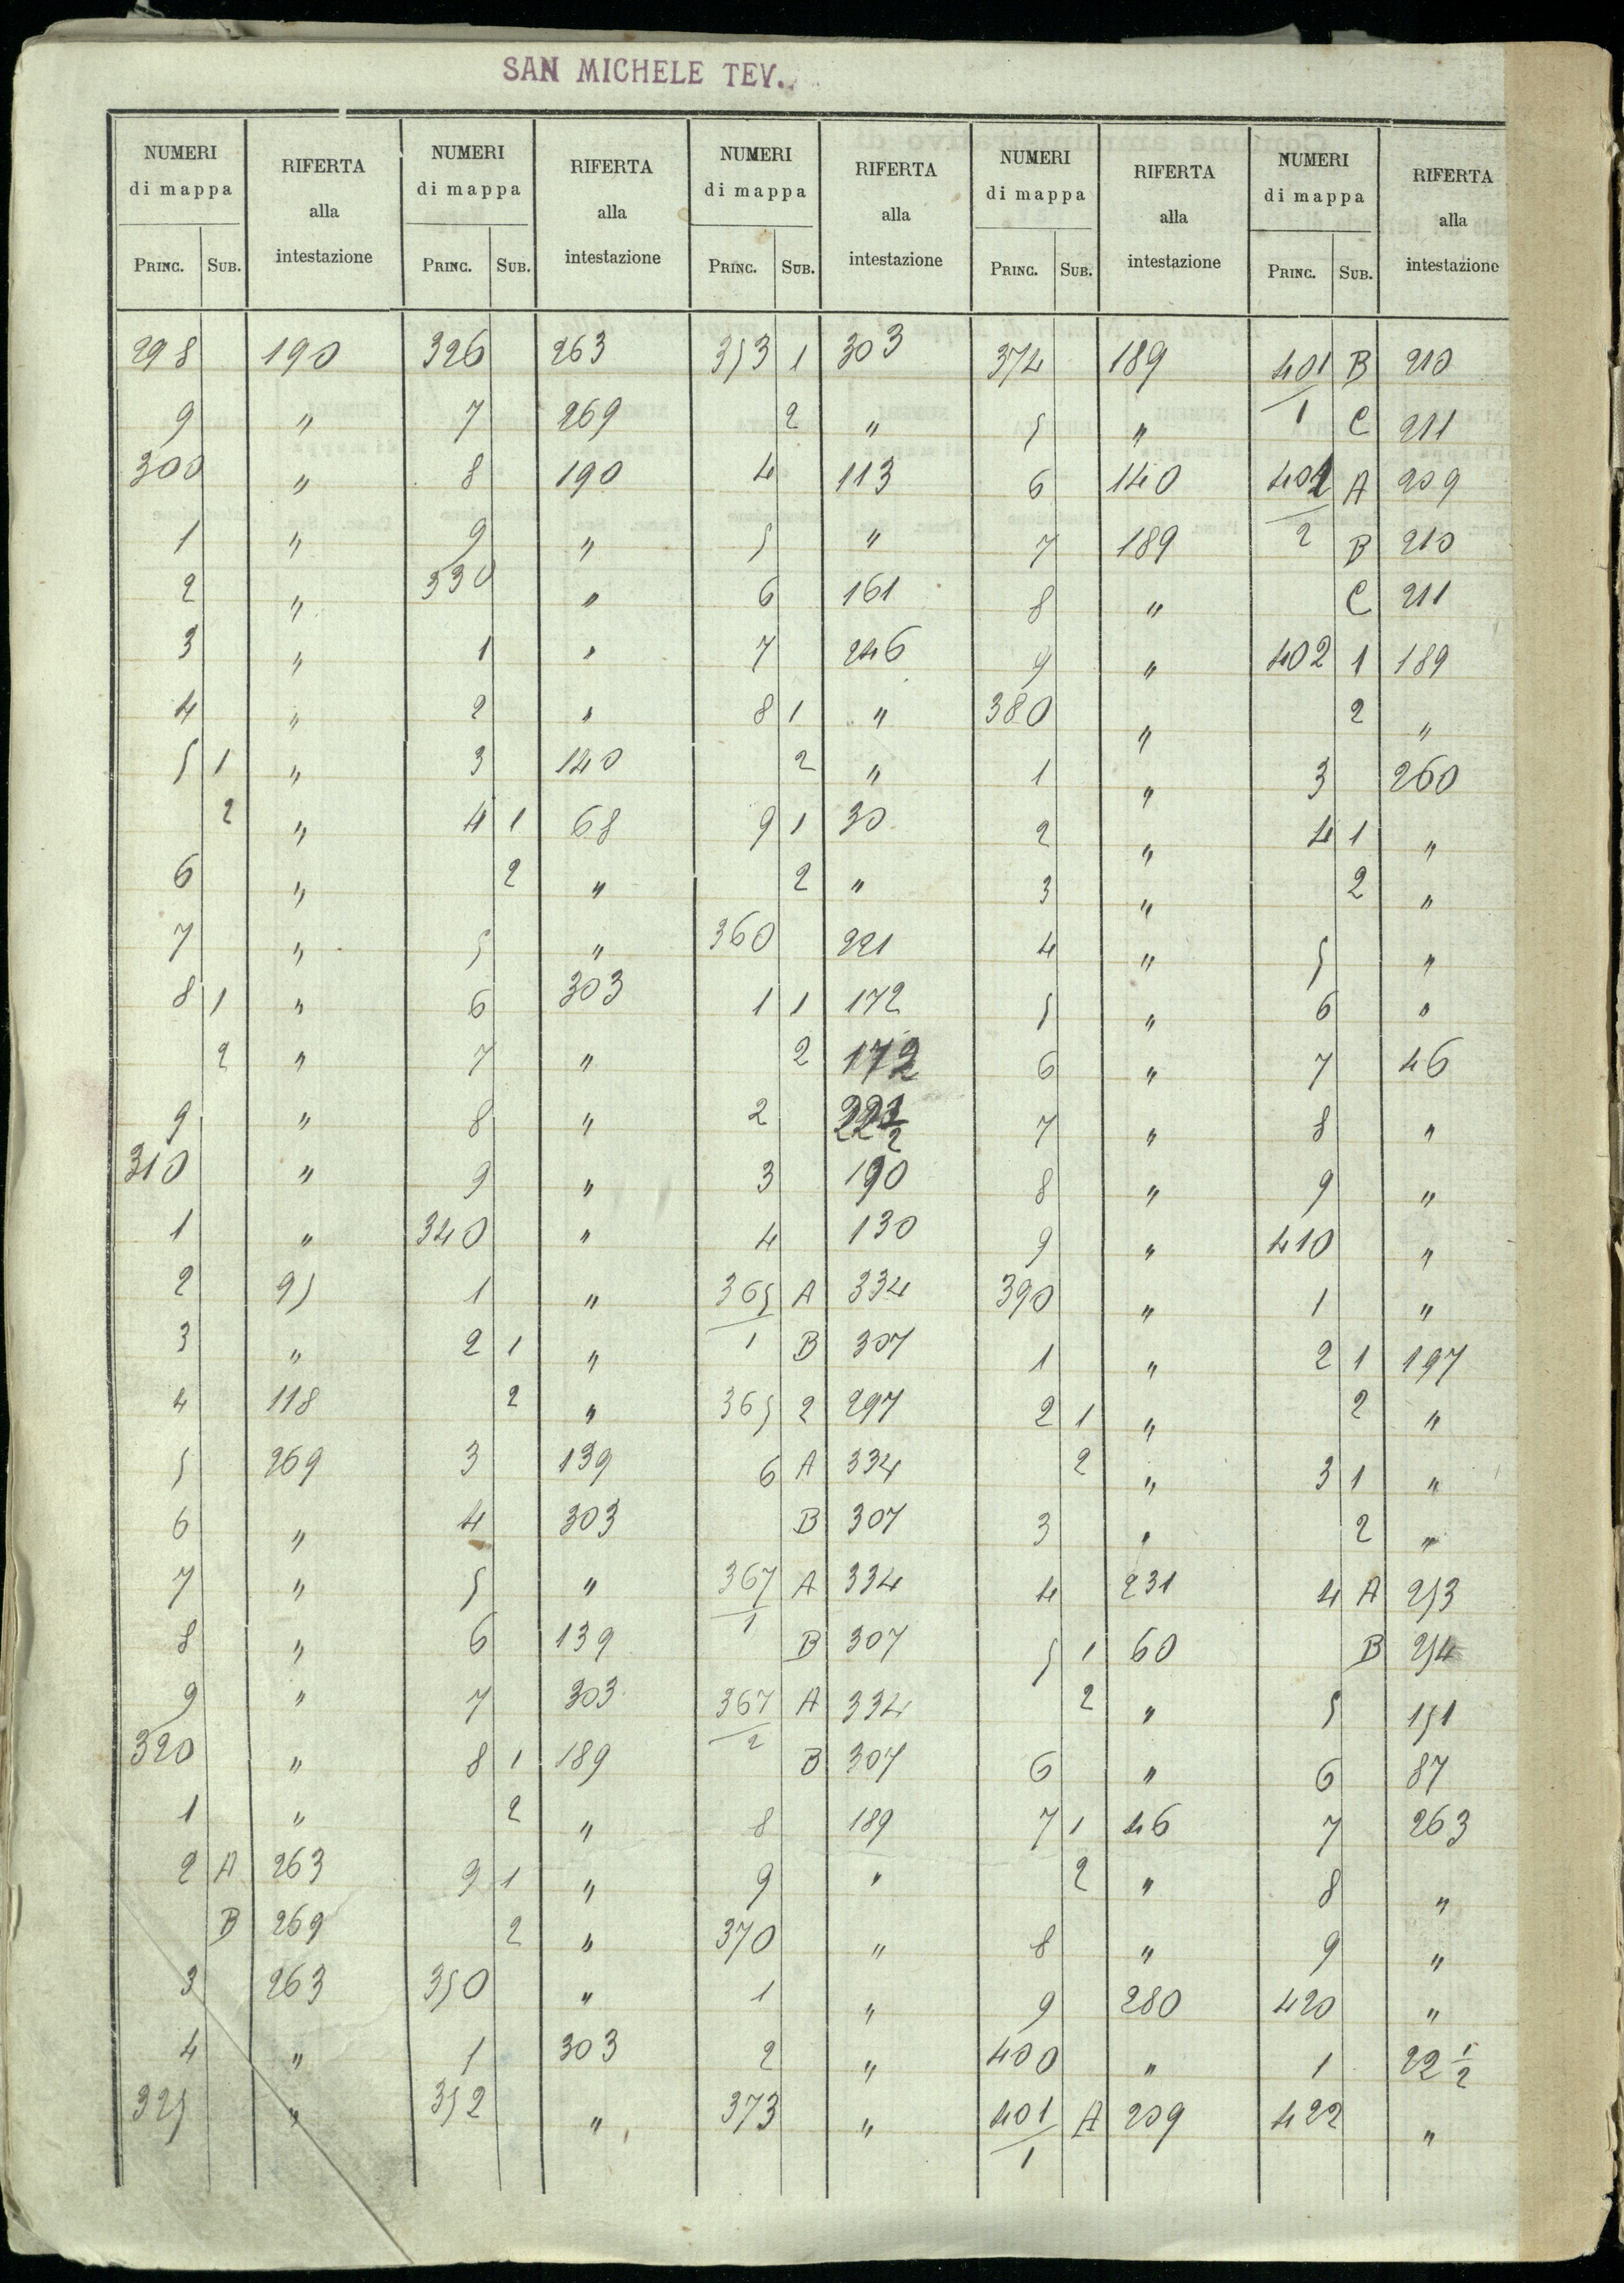 SAN MICHELE TEV.
NUMERI di mappa | RIFERTA alla intestazione | NUMERI di mappa | RIFERTA alla intestazione | NUMERI di mappa | RIFERTA alla intestazione | NUMERI di mappa | RIFERTA alla intestazione | NUMERI di mappa | RIFERTA alla intestazione
PRINC. | SUB. | | PRINC. | SUB. | | PRINC. | SUB. | | PRINC. | SUB. | | PRINC. | SUB. |
298 | | 190 | 326 | | 263 | 353 | 1 | 303 | 374 | | 189 | 401/1 | B | 210
9 | | " | 7 | | 269 | | 2 | " | 5 | | " | | C | 211
300 | | " | 8 | | 190 | 4 | | 113 | 6 | | 140 | 401/2 | A | 209
1 | | " | 9 | | " | 5 | | " | 7 | | 189 | | B | 210
2 | | " | 330 | | " | 6 | | 161 | 8 | | " | | C | 211
3 | | " | 1 | | " | 7 | | 246 | 9 | | " | 402 | 1 | 189
4 | | " | 2 | | " | 8 | 1 | " | 380 | | " | | 2 | "
5 | 1 | " | 3 | | 140 | | 2 | " | 1 | | " | 3 | | 260
| 2 | " | 4 | 1 | 68 | 9 | 1 | 30 | 2 | | " | 4 | 1 | "
6 | | " | | 2 | " | | 2 | " | 3 | | " | | 2 | "
7 | | " | 5 | | " | 360 | | 221 | 4 | | " | 5 | | "
8 | 1 | " | 6 | | 303 | 1 | 1 | 172 | 5 | | " | 6 | | "
| 2 | " | 7 | | " | | 2 | 172 | 6 | | " | 7 | | 46
9 | | " | 8 | | " | 2 | | | 7 | | " | 8 | | "
310 | | " | 9 | | " | 3 | | 190 | 8 | | " | 9 | | "
1 | | " | 340 | | " | 4 | | 130 | 9 | | " | 410 | | "
2 | | 95 | 1 | | " | 365/1 | A | 334 | 390 | | " | 1 | | "
3 | | " | 2 | 1 | " | | B | 307 | 1 | | " | 2 | 1 | 197
4 | | 118 | | 2 | " | 365 | 2 | 297 | 2 | 1 | " | | 2 | "
5 | | 269 | 3 | | 139 | 6 | A | 334 | | 2 | " | 3 | 1 | "
6 | | " | 4 | | 303 | | B | 307 | 3 | | " | | 2 | "
7 | | " | 5 | | " | 367/1 | A | 334 | 4 | | 231 | 4 | A | 253
8 | | " | 6 | | 139 | | B | 307 | 5 | 1 | 60 | | B | 254
9 | | " | 7 | | 303 | 367/2 | A | 334 | | 2 | " | 5 | | 151
320 | | " | 8 | 1 | 189 | | B | 307 | 6 | | " | 6 | | 87
1 | | " | | 2 | " | 8 | | 189 | 7 | 1 | 46 | 7 | | 263
2 | A | 263 | 9 | 1 | " | 9 | | " | | 2 | " | 8 | | "
| B | 269 | | 2 | " | 370 | | " | 8 | | " | 9 | | "
3 | | 263 | 350 | | " | 1 | | " | 9 | | 280 | 420 | | "
4 | | " | 1 | | 303 | 2 | | " | 400 | | " | 1 | | 22 1/2
325 | | " | 352 | | " | 373 | | " | 401/1 | A | 209 | 422 | | "